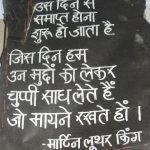 उस दिन से
समाप्त होना
शुरू हो जाता है
जिस दिन हम
उन मुद्दों को लेकर
चुप्पी साध लेते हैं
जो मायने रखते हों।
-मार्टिन लूथर किंग